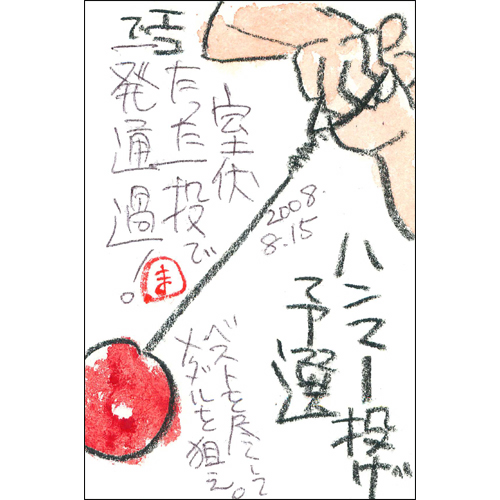 ハンマー投げ
予選
2008.
8.15
室伏
たった一投で
一発通過!。
ま
ベストを尽くして
メダルを狙え。